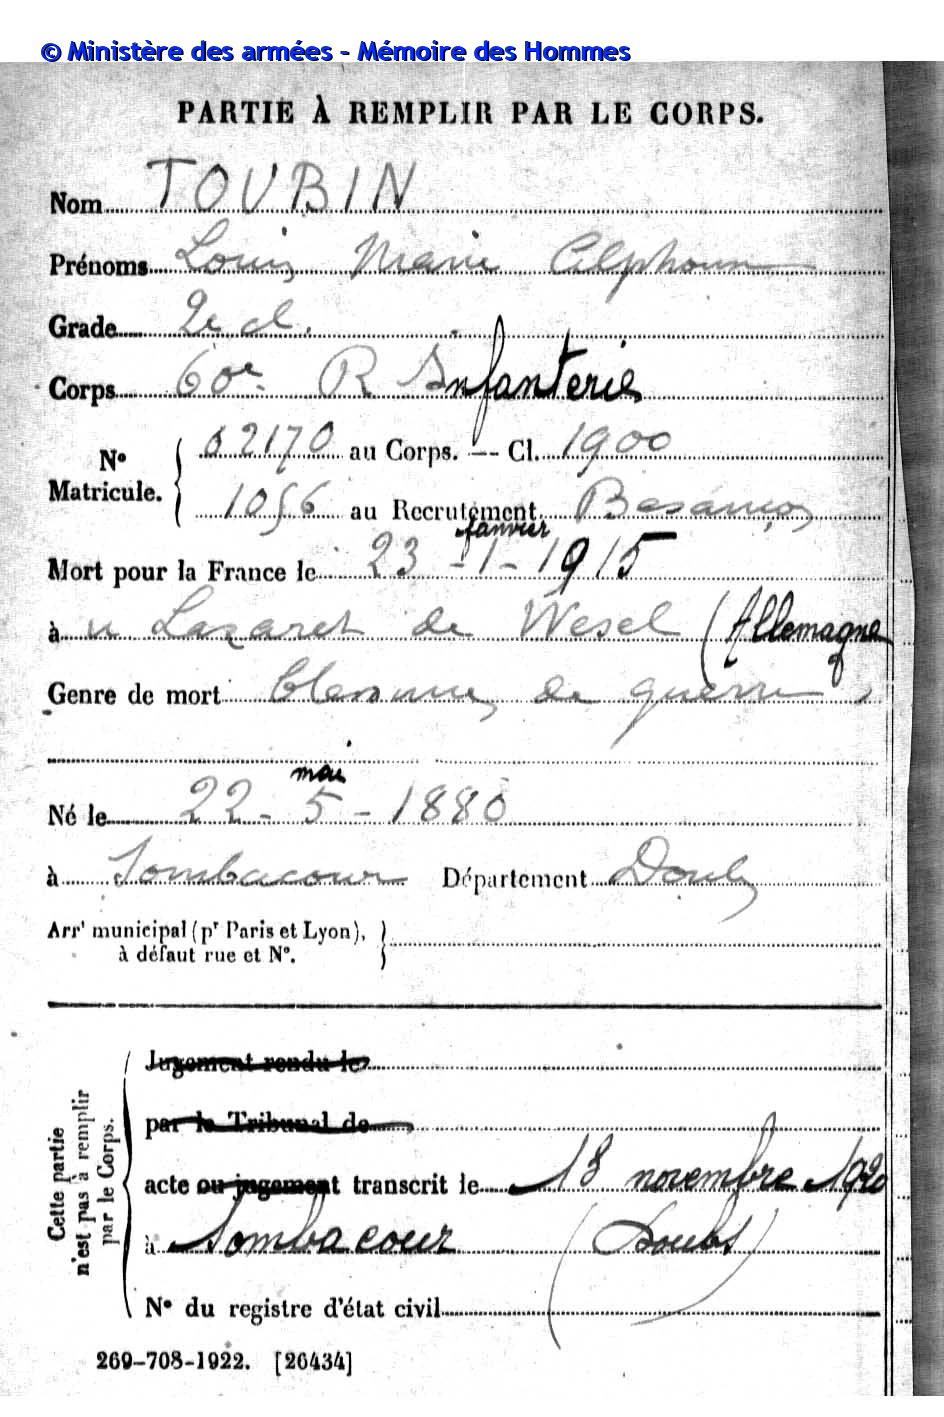 © Ministère des armées - Mémoire des Hommes
PARTIE À REMPLIR PAR LE CORPS.
Nom TOUBIN
Prénoms Louis Marie Alphonse
Grade 2e cl.
Corps 60e R Infanterie
N° Matricule. 02170 au Corps. — Cl. 1900
1056 au Recrutement Besançon
janvier
Mort pour la France le 23 - 1 - 1915
à u Lazaret de Wesel (Allemagne
Genre de mort blessures de guerre
mai
Né le 22 - 5 - 1880
à Sombacour Département Doubs
Arrt municipal (pr Paris et Lyon),
à défaut rue et N°.
Cette partie
n'est pas à remplir
par le Corps.
Jugement rendu le
par le Tribunal de
acte ou jugement transcrit le 18 novembre 1920
à Sombacour (Doubs)
N° du registre d'état civil
269-708-1922. [26434]